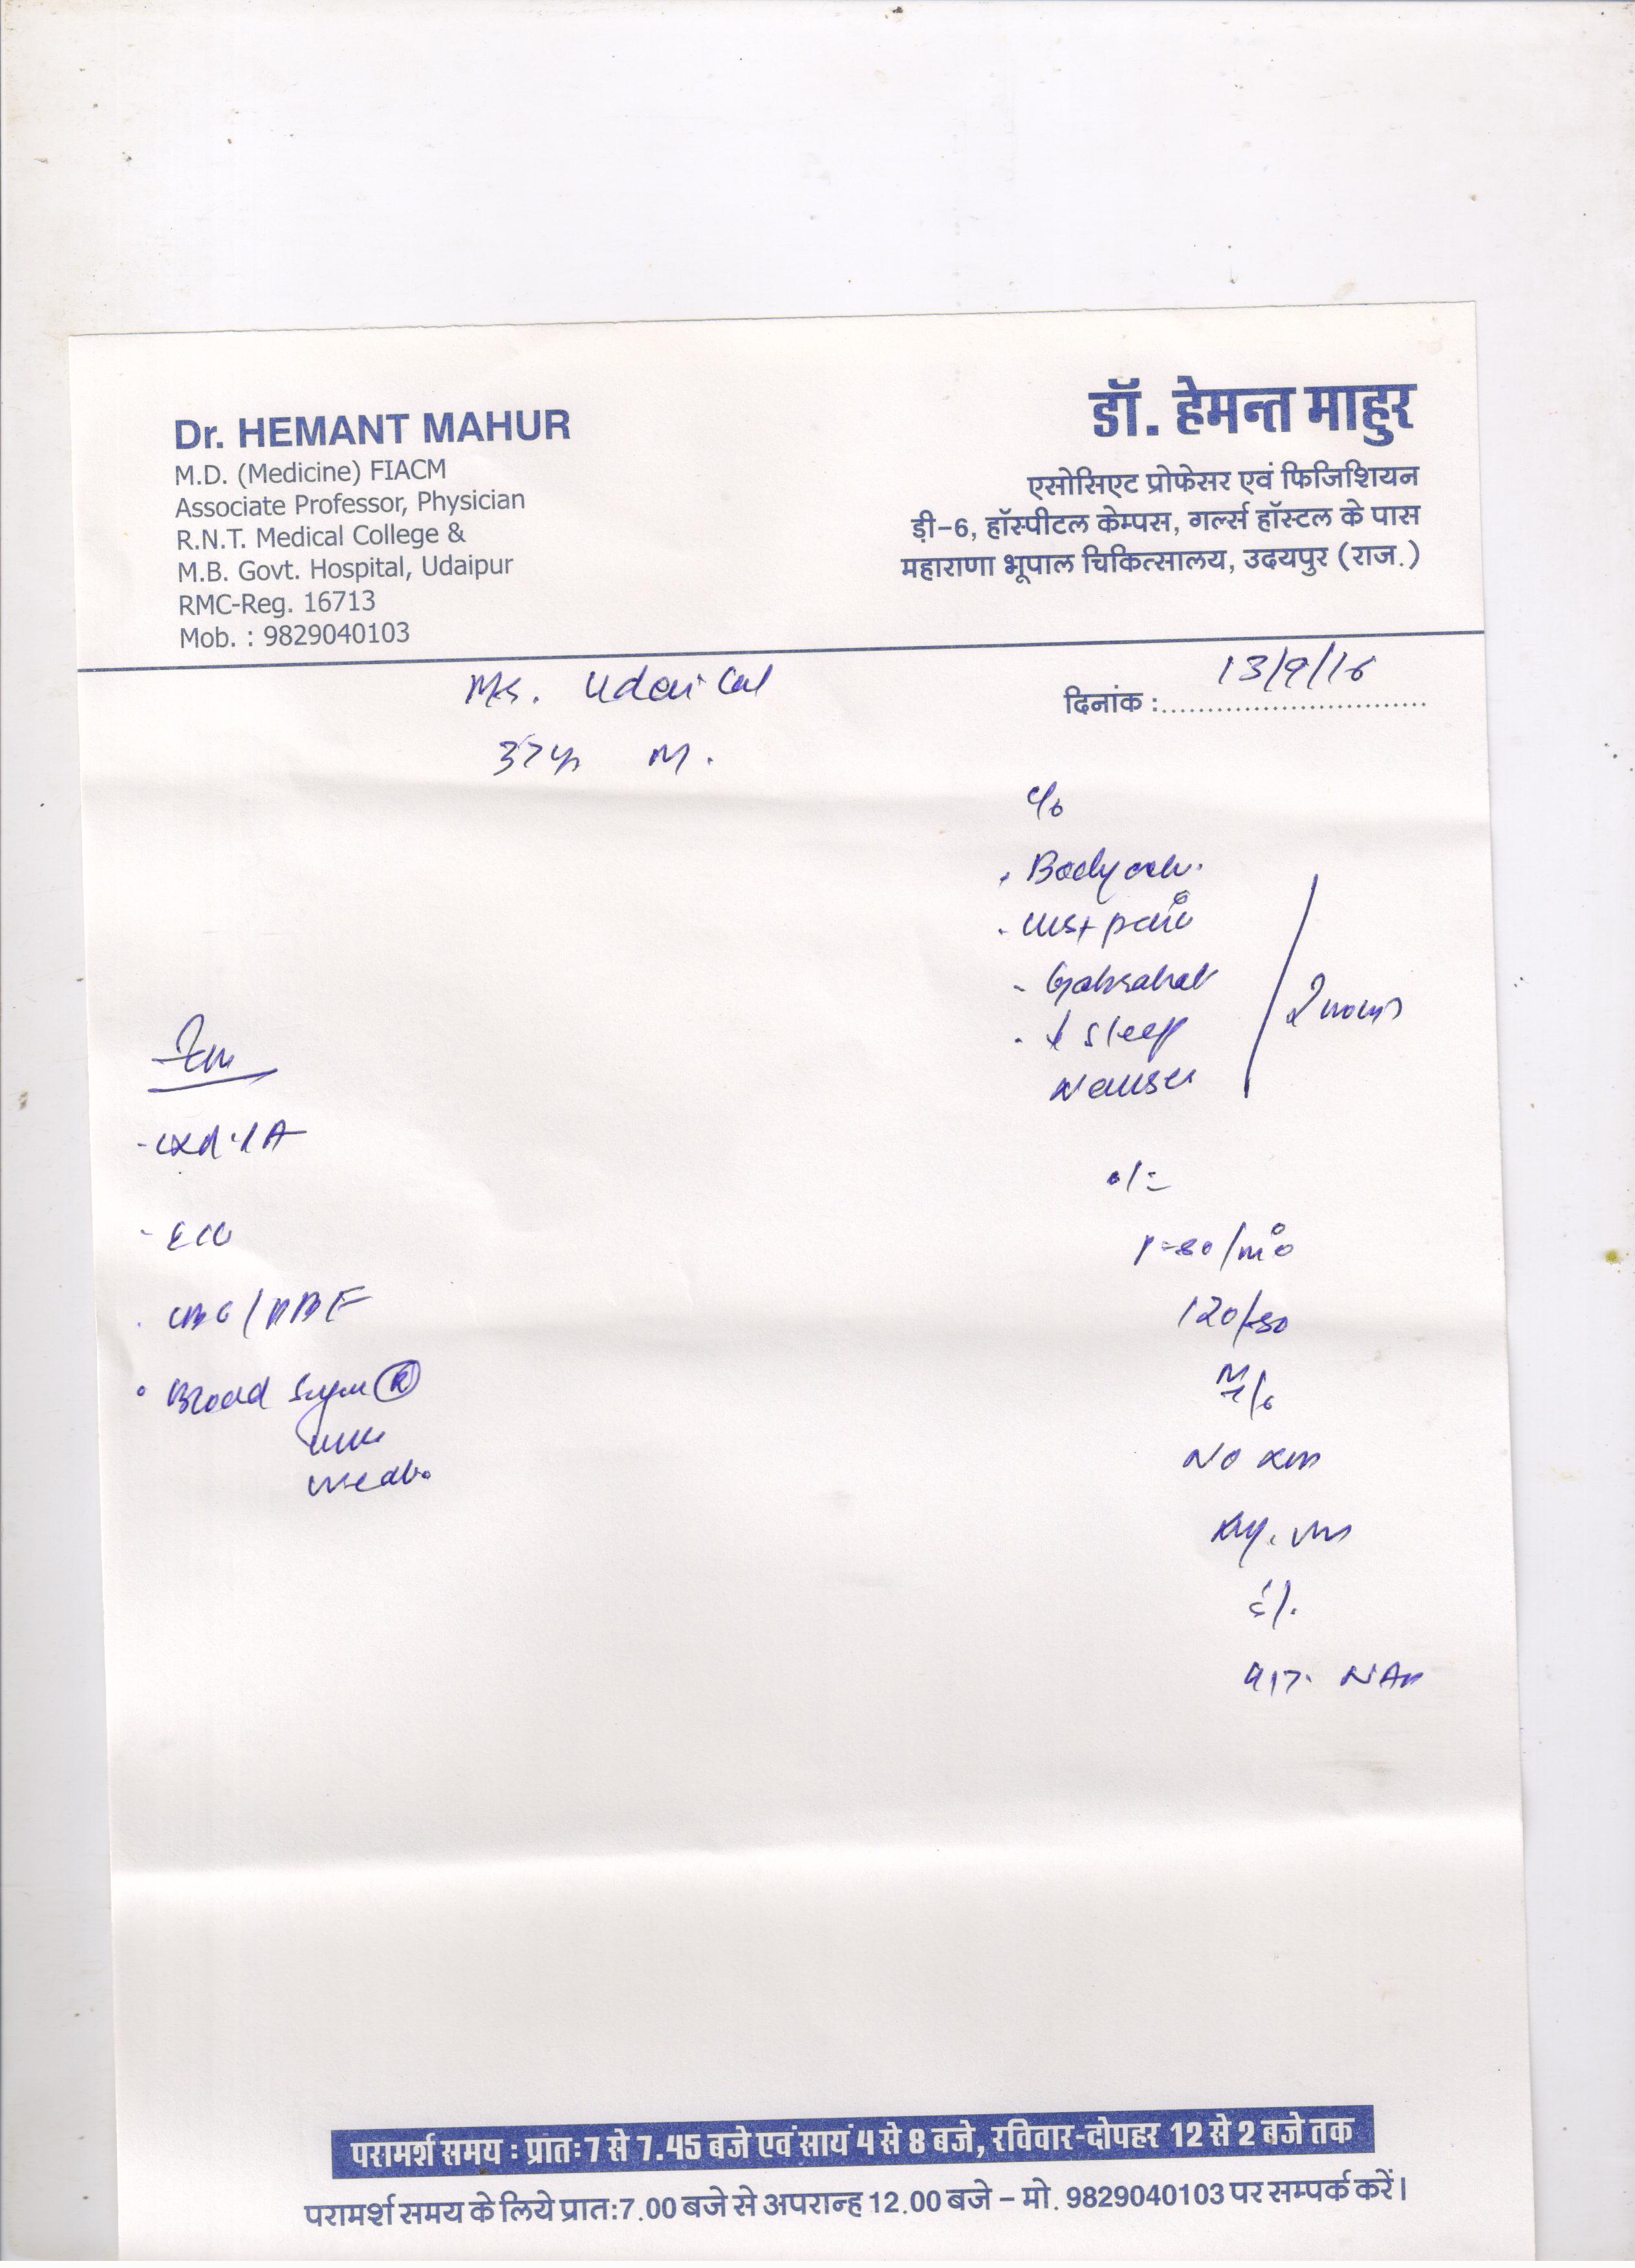 Dr. HEMANT MAHUR
M.D. (Medicine) FIACM
Associate Professor, Physician
R.N.T. Medical College &
M.B. Govt. Hospital, Udaipur
RMC-Reg. 16713
Mob. : 9829040103
डॉ. हेमन्त माहुर
एसोसिएट प्रोफेसर एवं फिजिशियन
ड़ी-6, हॉस्पीटल केम्पस, गर्ल्स हॉस्टल के पास
महाराणा भूपाल चिकित्सालय, उदयपुर (राज.)
दिनांक : 13/9/16
37yr M.
c/o
. Body
. pain
- Gabrahat
. ↓ sleep
Nausea
2
- ECG
. CBC / PBF
. Blood Sugar (R)
o/E
P=80/min
120/80
NAD
परामर्श समय : प्रातः7 से 7.45 बजे एवं सायं 4 से 8 बजे, रविवार-दोपहर 12 से 2 बजे तक
परामर्श समय के लिये प्रात:7.00 बजे से अपरान्ह 12.00 बजे – मो. 9829040103 पर सम्पर्क करें।